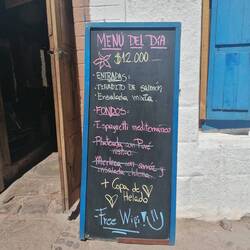 MENÚ DEL DÍA
$12.000.-
-ENTRADAS:
-TIRADITO DE SALMÓN
-Ensalada mixta
-FONDOS:
-Espaguetti mediterraneos
-Plateada con Puré
rústico
-Merluza con arroz y
ensalada chilena
+ Copa de
Helado
-Free Wifi!!